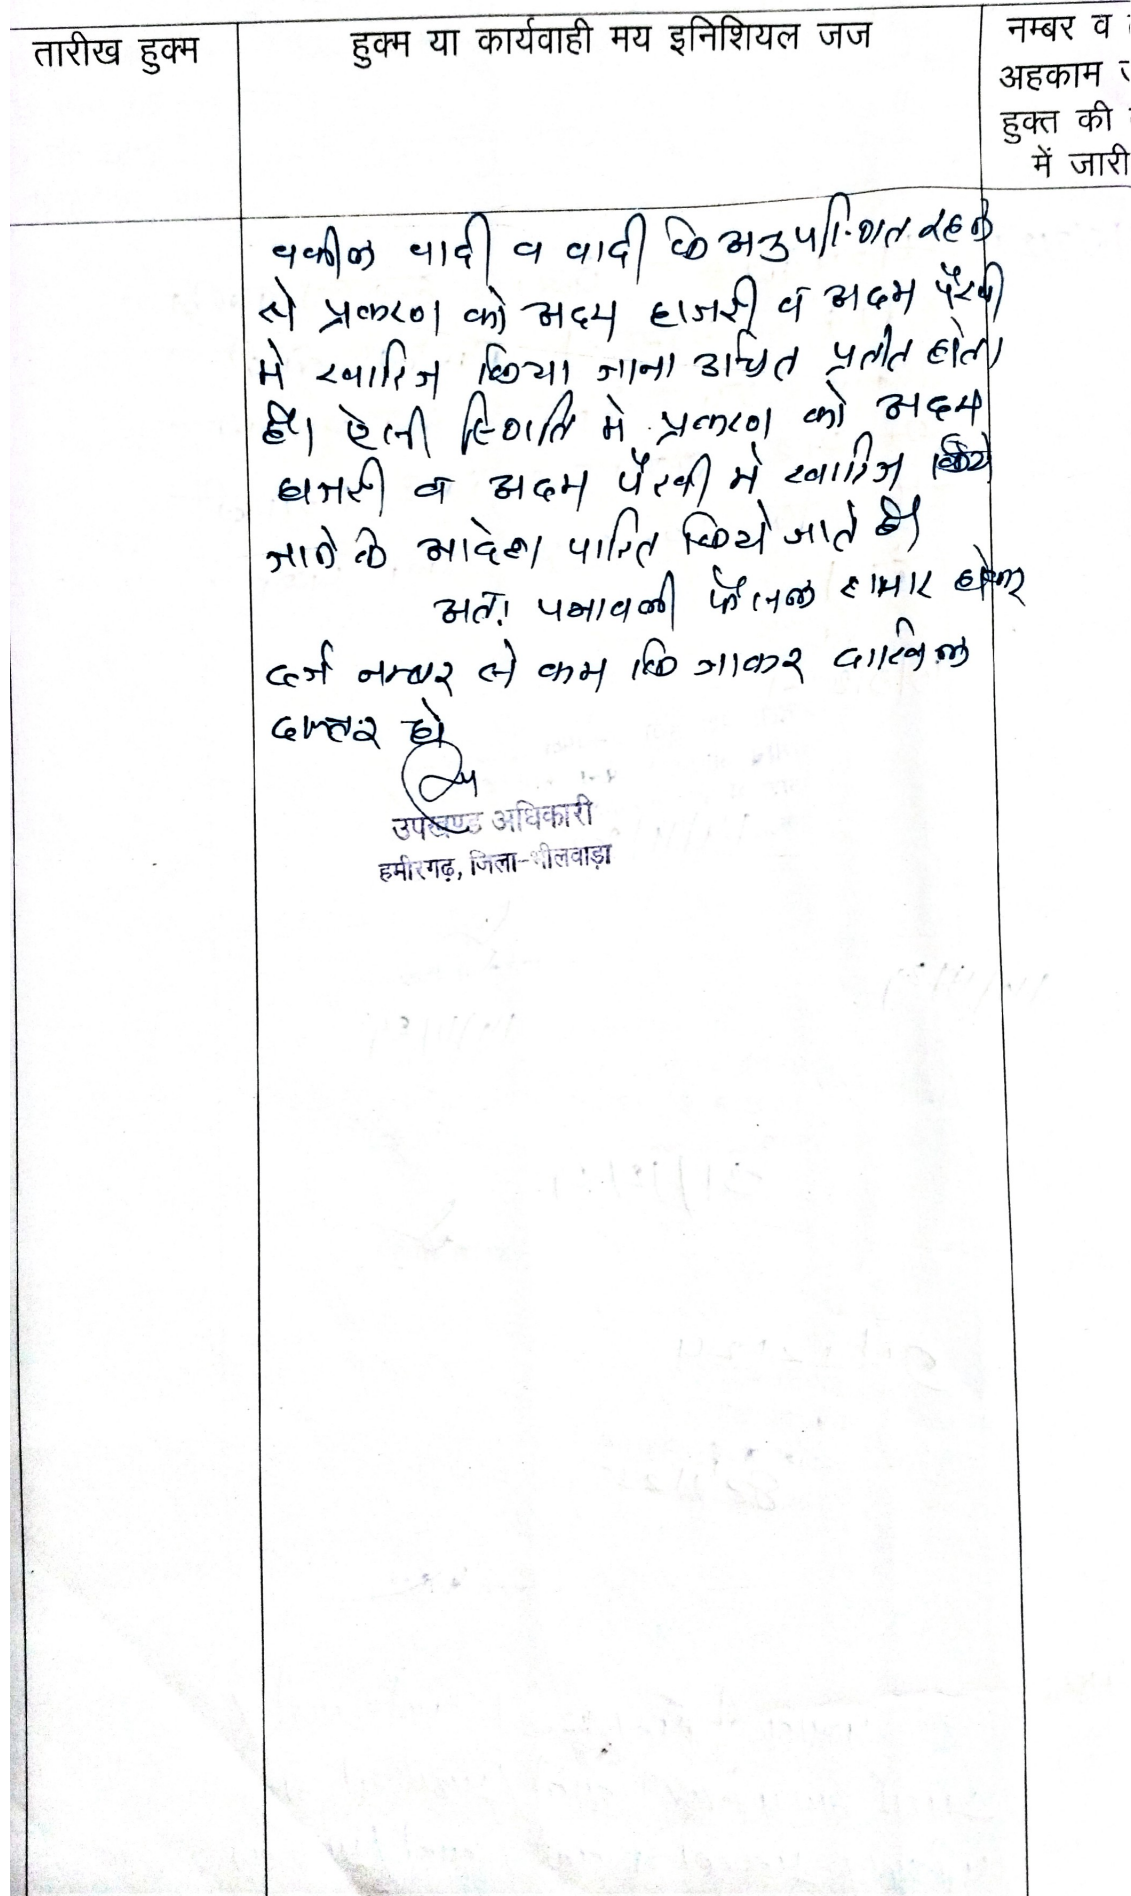 तारीख हुक्म
हुक्म या कार्यवाही मय इनिशियल जज
नम्बर व
अहकाम
हुक्त की
में जारी
वकील वादी व वादी कि अनुपस्थित रहने
से प्रकरण को अदम हाजरी व अदम पैरवी
मे खारिज किया जाना उचित प्रतीत होता
है। ऐसी स्थिति मे प्रकरण को अदम
हाजरी व अदम पैरवी मे खारिज किये
जाने के आदेश पारित किये जाते है।
अतः पत्रावली फैसल शुमार होकर
दर्ज नम्बर से कम कि जाकर दाखिल
दफ्तर हो
उपखण्ड अधिकारी
हमीरगढ़, जिला-भीलवाड़ा